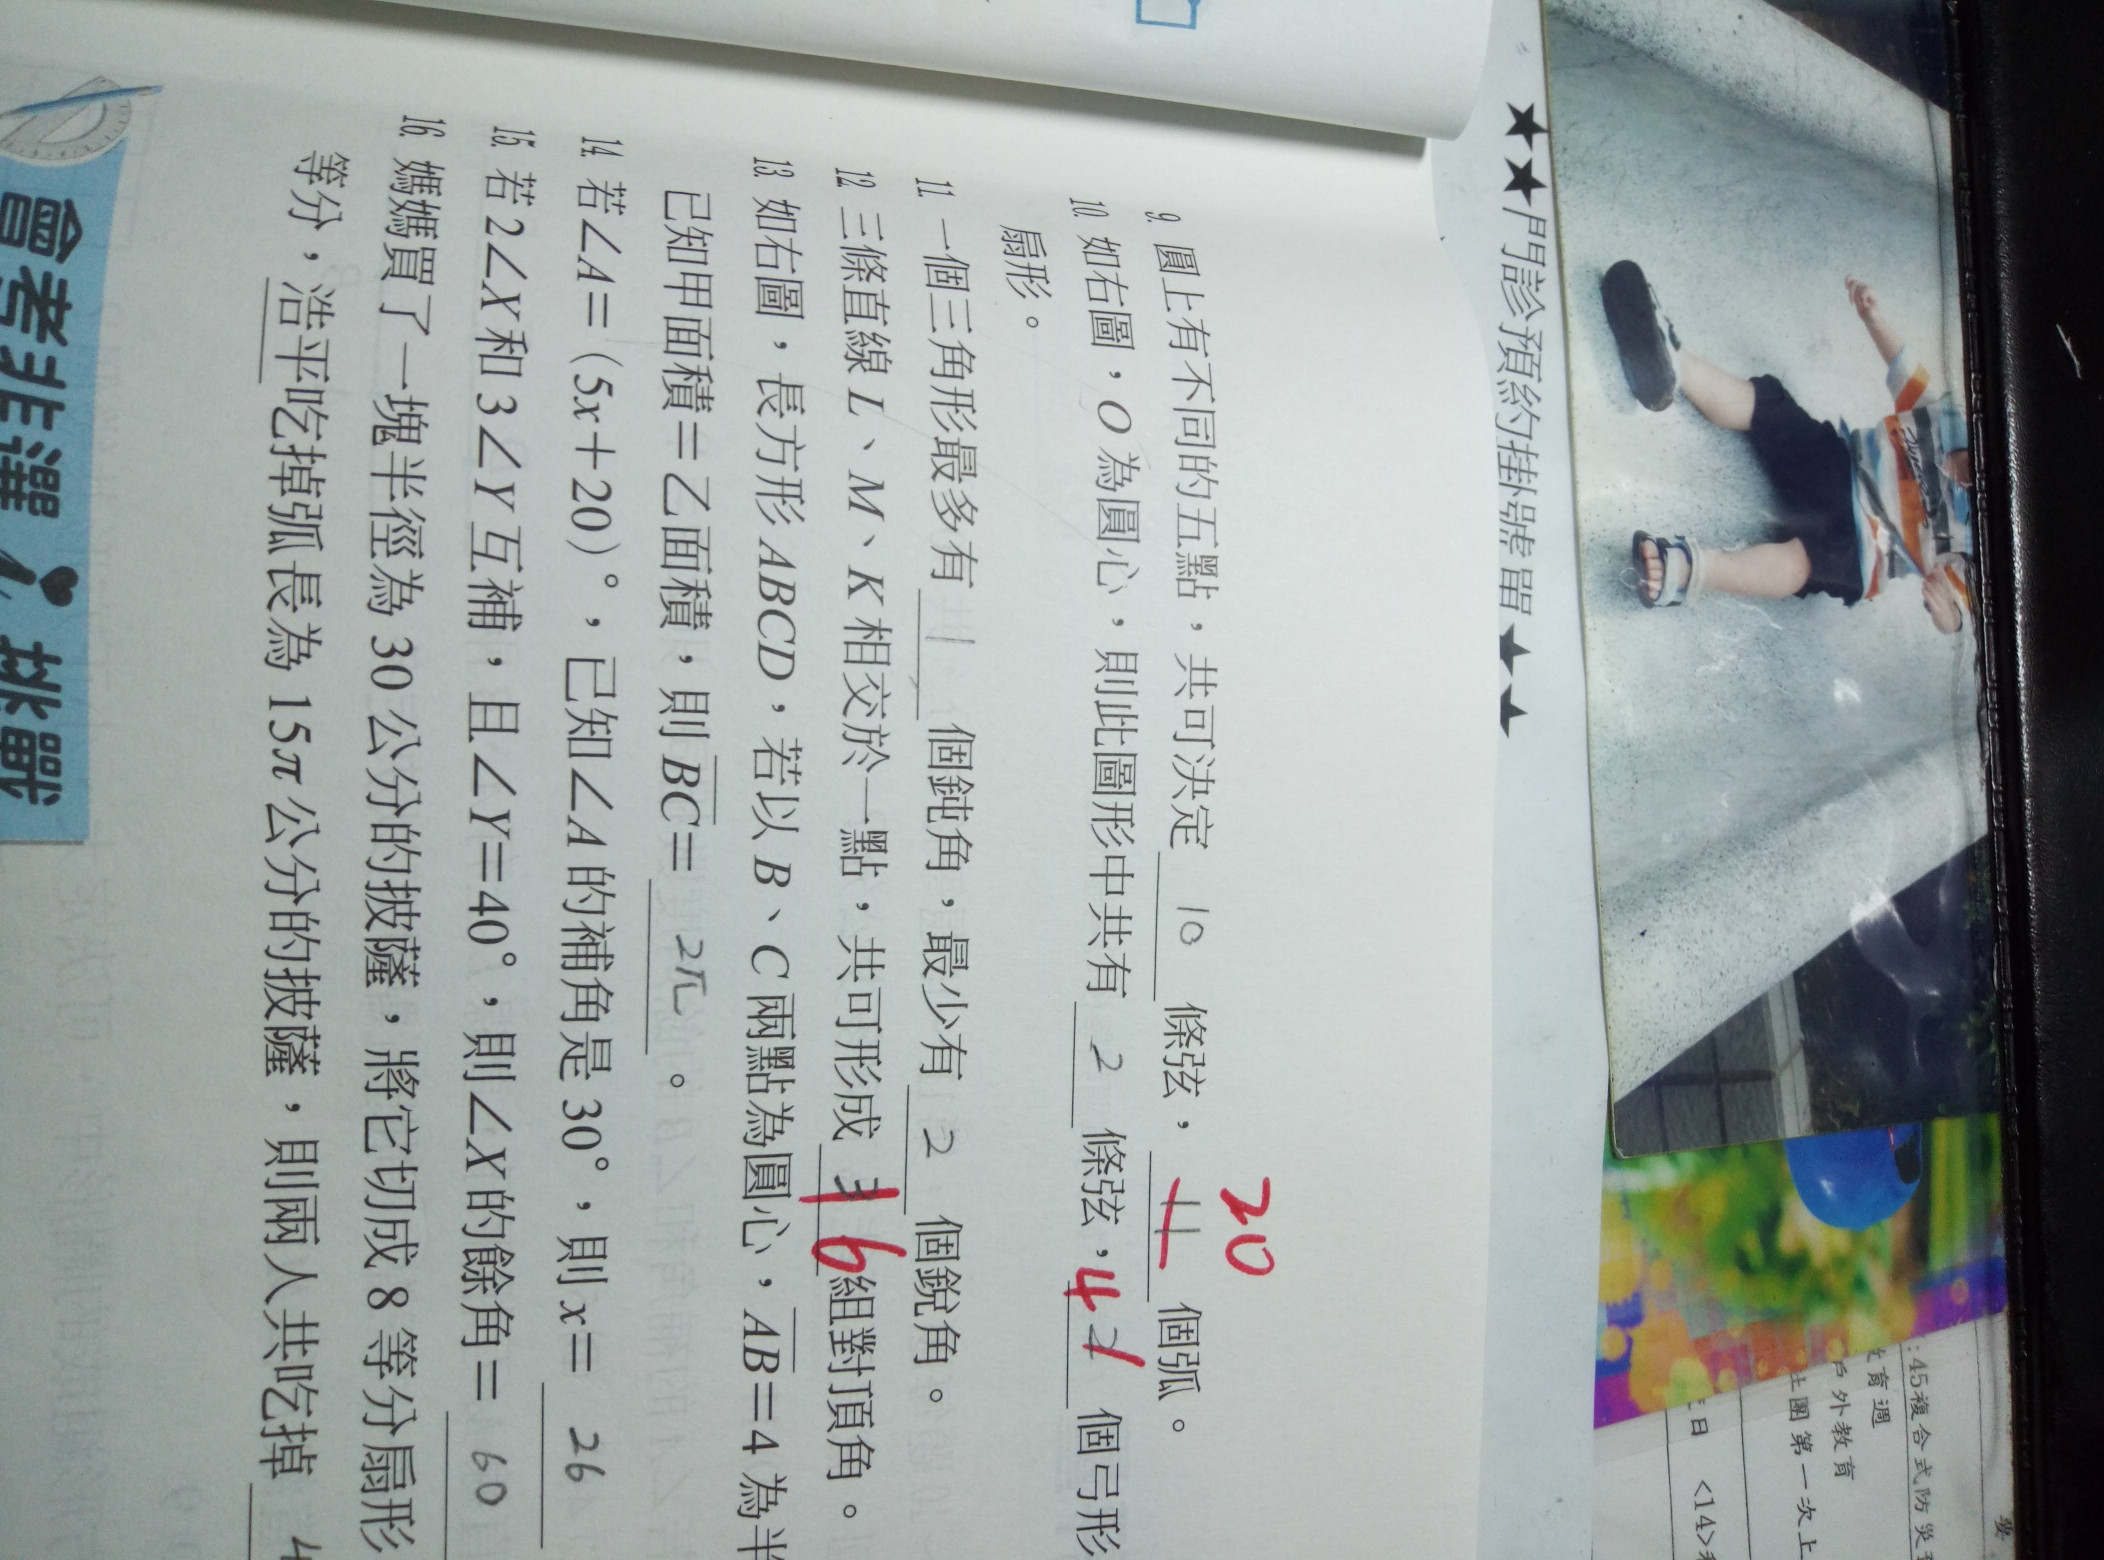 ★★門診預約掛號單★★
9. 圓上有不同的五點，共可決定 10 條弦， 11 20 個弧。
10. 如右圖，O為圓心，則此圖形中共有 2 條弦， 4 2 個弓形
扇形。
11. 一個三角形最多有 1 個鈍角，最少有 2 個銳角。
12. 三條直線 L、M、K 相交於一點，共可形成 3 6 組對頂角。
13. 如右圖，長方形 ABCD，若以 B、C 兩點為圓心，AB=4 為半
已知甲面積=乙面積，則 BC= 2π 。
14. 若∠A=(5x+20)°，已知∠A 的補角是 30°，則 x= 26
15. 若 2∠X 和 3∠Y 互補，且∠Y=40°，則∠X 的餘角= 60
16. 媽媽買了一塊半徑為 30 公分的披薩，將它切成 8 等分扇形
等分，浩平吃掉弧長為 15π 公分的披薩，則兩人共吃掉 4
會考非選 挑戰
:45複合式防災
育週
戶外教育
社團第一次上
日 <14>